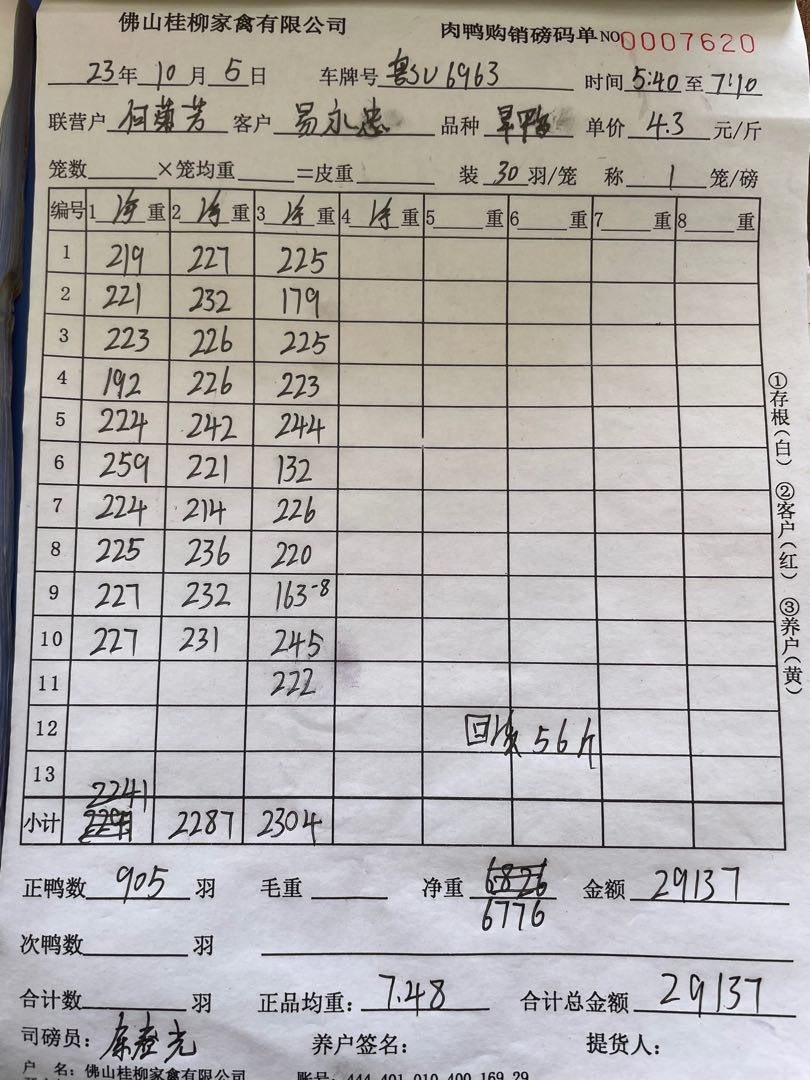 佛山桂柳家禽有限公司 肉鸭购销磅码单 NO 0007620
23年 10月 5日 车牌号 粤SU6963 时间 5:40 至 7:10
联营户 何菊芳 客户 易永忠 品种 旱鸭 单价 4.3 元/斤
笼数 ×笼均重 =皮重 装 30 羽/笼 称 1 笼/磅
编号 1 净 重 2 净 重 3 净 重 4 净 重 5 重 6 重 7 重 8 重
1 219 227 225
2 221 232 179
3 223 226 225
4 192 226 223
5 224 242 244
6 259 221 132
7 224 214 226
8 225 236 220
9 227 232 163-8
10 227 231 245
11 222
12 回 56斤
13
2241
小计 2287 2304
正鸭数 905 羽 毛重 净重 6826 金额 29137
6776
次鸭数 羽
合计数 羽 正品均重: 7.48 合计总金额 29137
司磅员: 养户签名: 提货人:
户 名: 佛山桂柳家禽有限公司 账号: 444 401 010 400 169 29
①存根(白) ②客户(红) ③养户(黄)